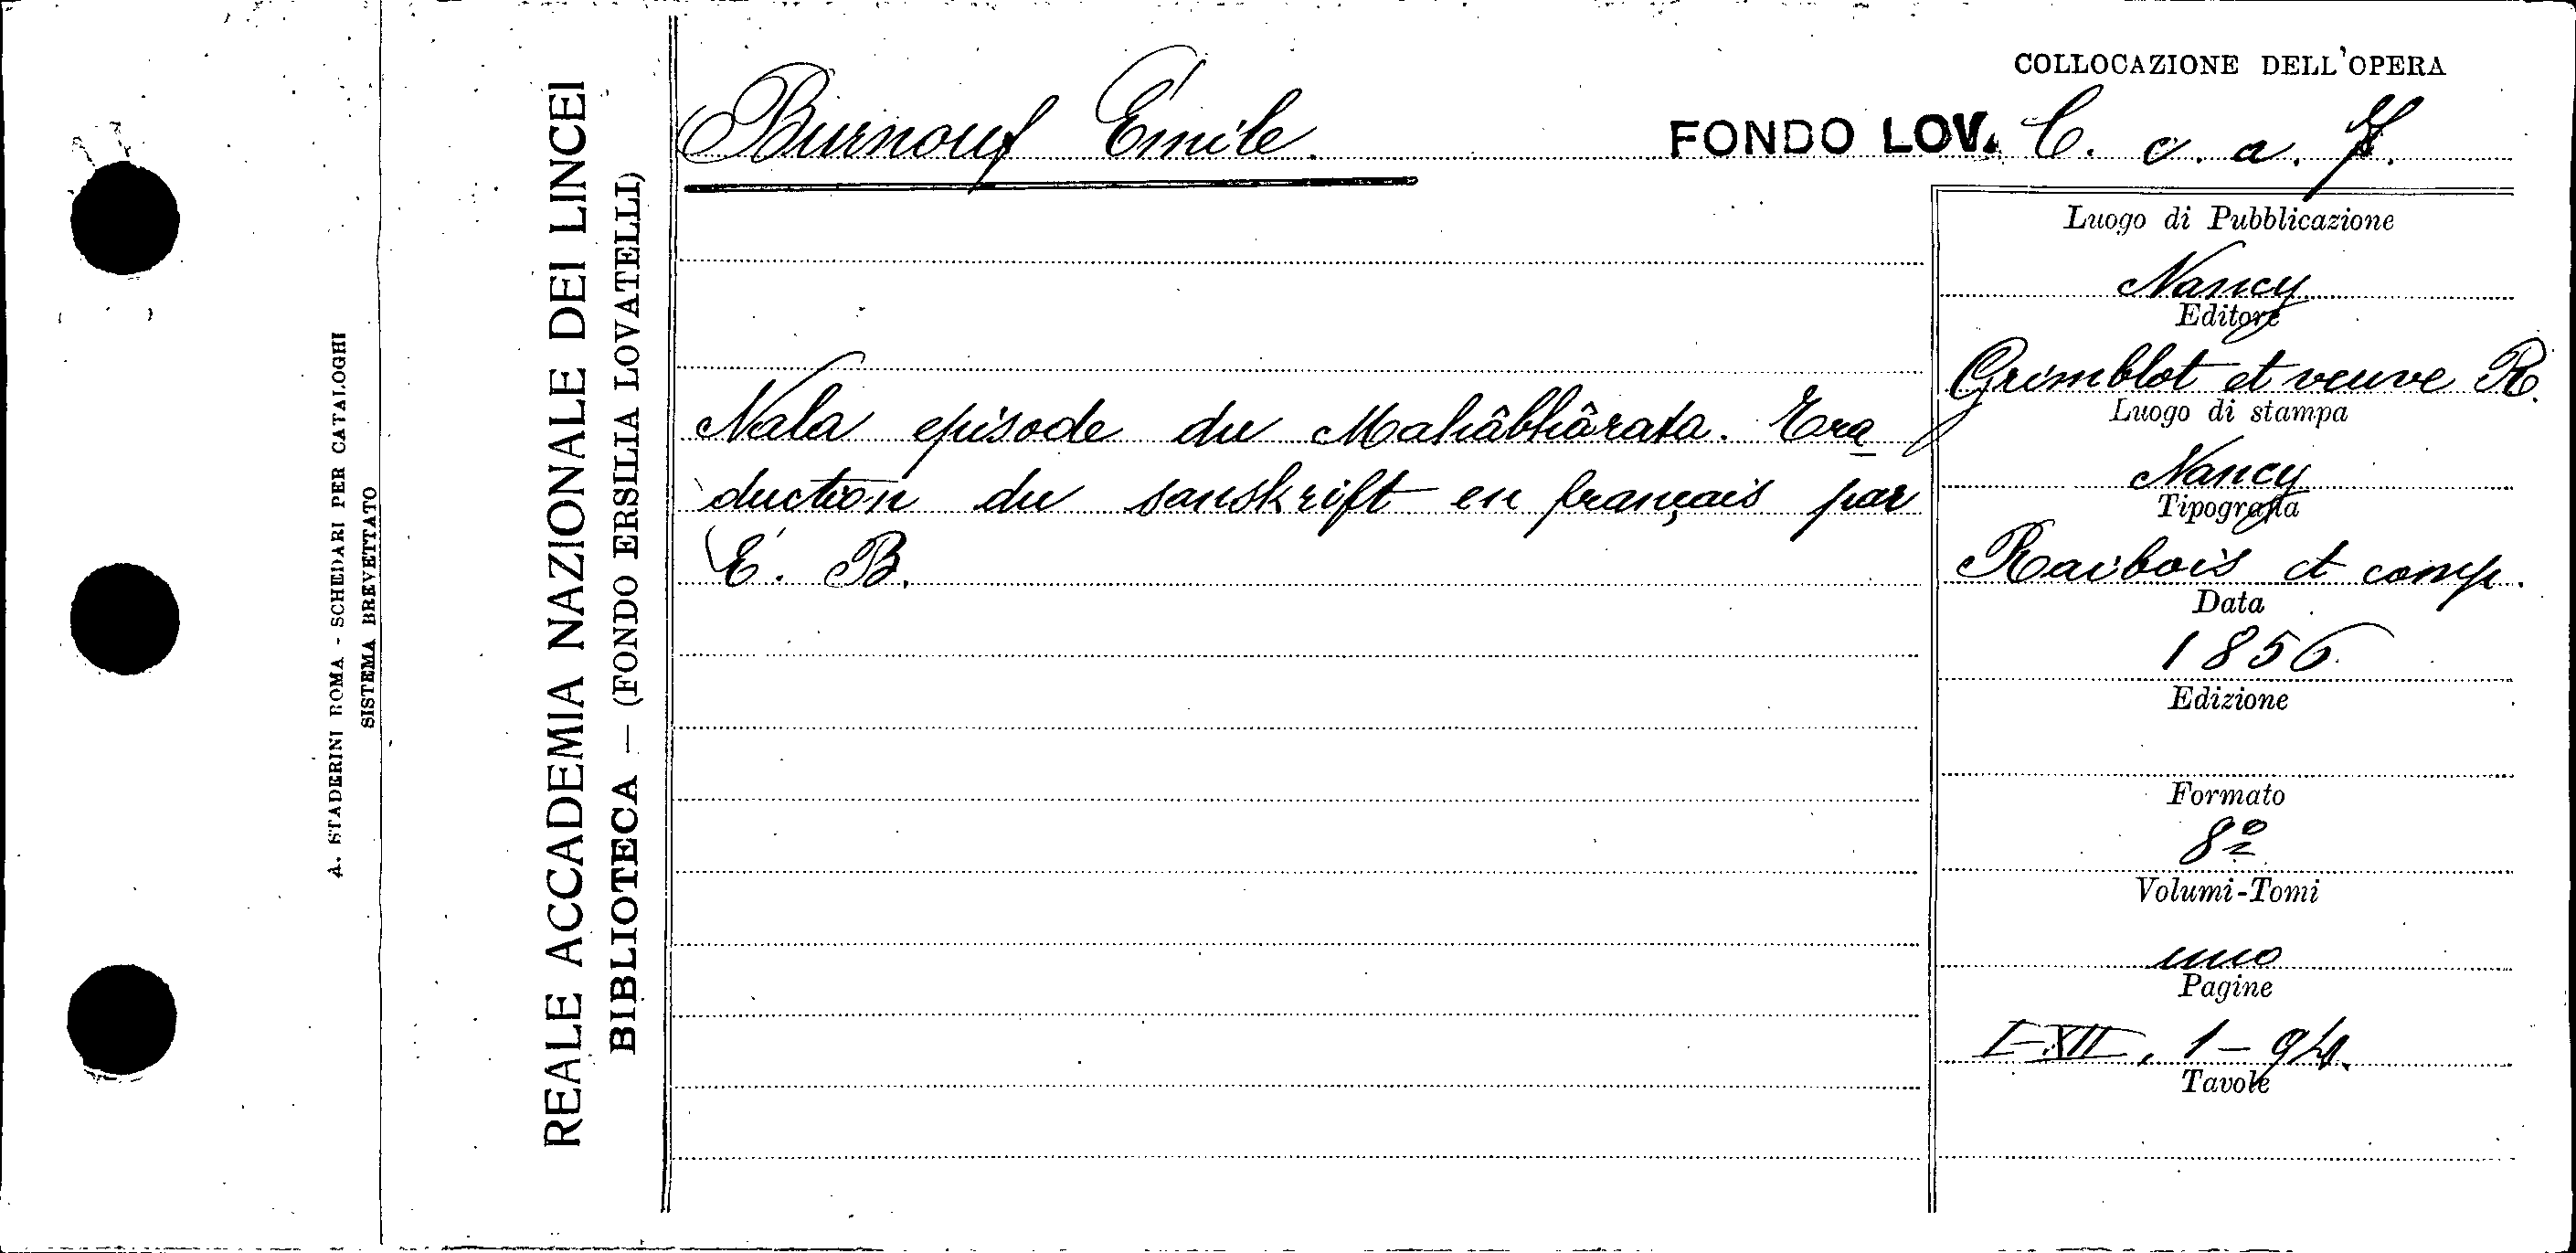 COLLOCAZIONE DELL'OPERA
Burnouf Émile.
FONDO LOV. C. c. a. 7.
Nala episode du Mahâbhârata. Tra
duction du sanskrift en français par
É. B.
Luogo di Pubblicazione
Nancy
Editore
Grimblot et veuve R.
Luogo di stampa
Nancy
Tipografia
Raibois et comp.
Data
1856
Edizione
Formato
8º
Volumi-Tomi
uno
Pagine
I-XII, 1-94.
Tavole
REALE ACCADEMIA NAZIONALE DEI LINCEI
BIBLIOTECA — (FONDO ERSILIA LOVATELLI)
A. STADERINI ROMA - SCHEDARI PER CATALOGHI
SISTEMA BREVETTATO